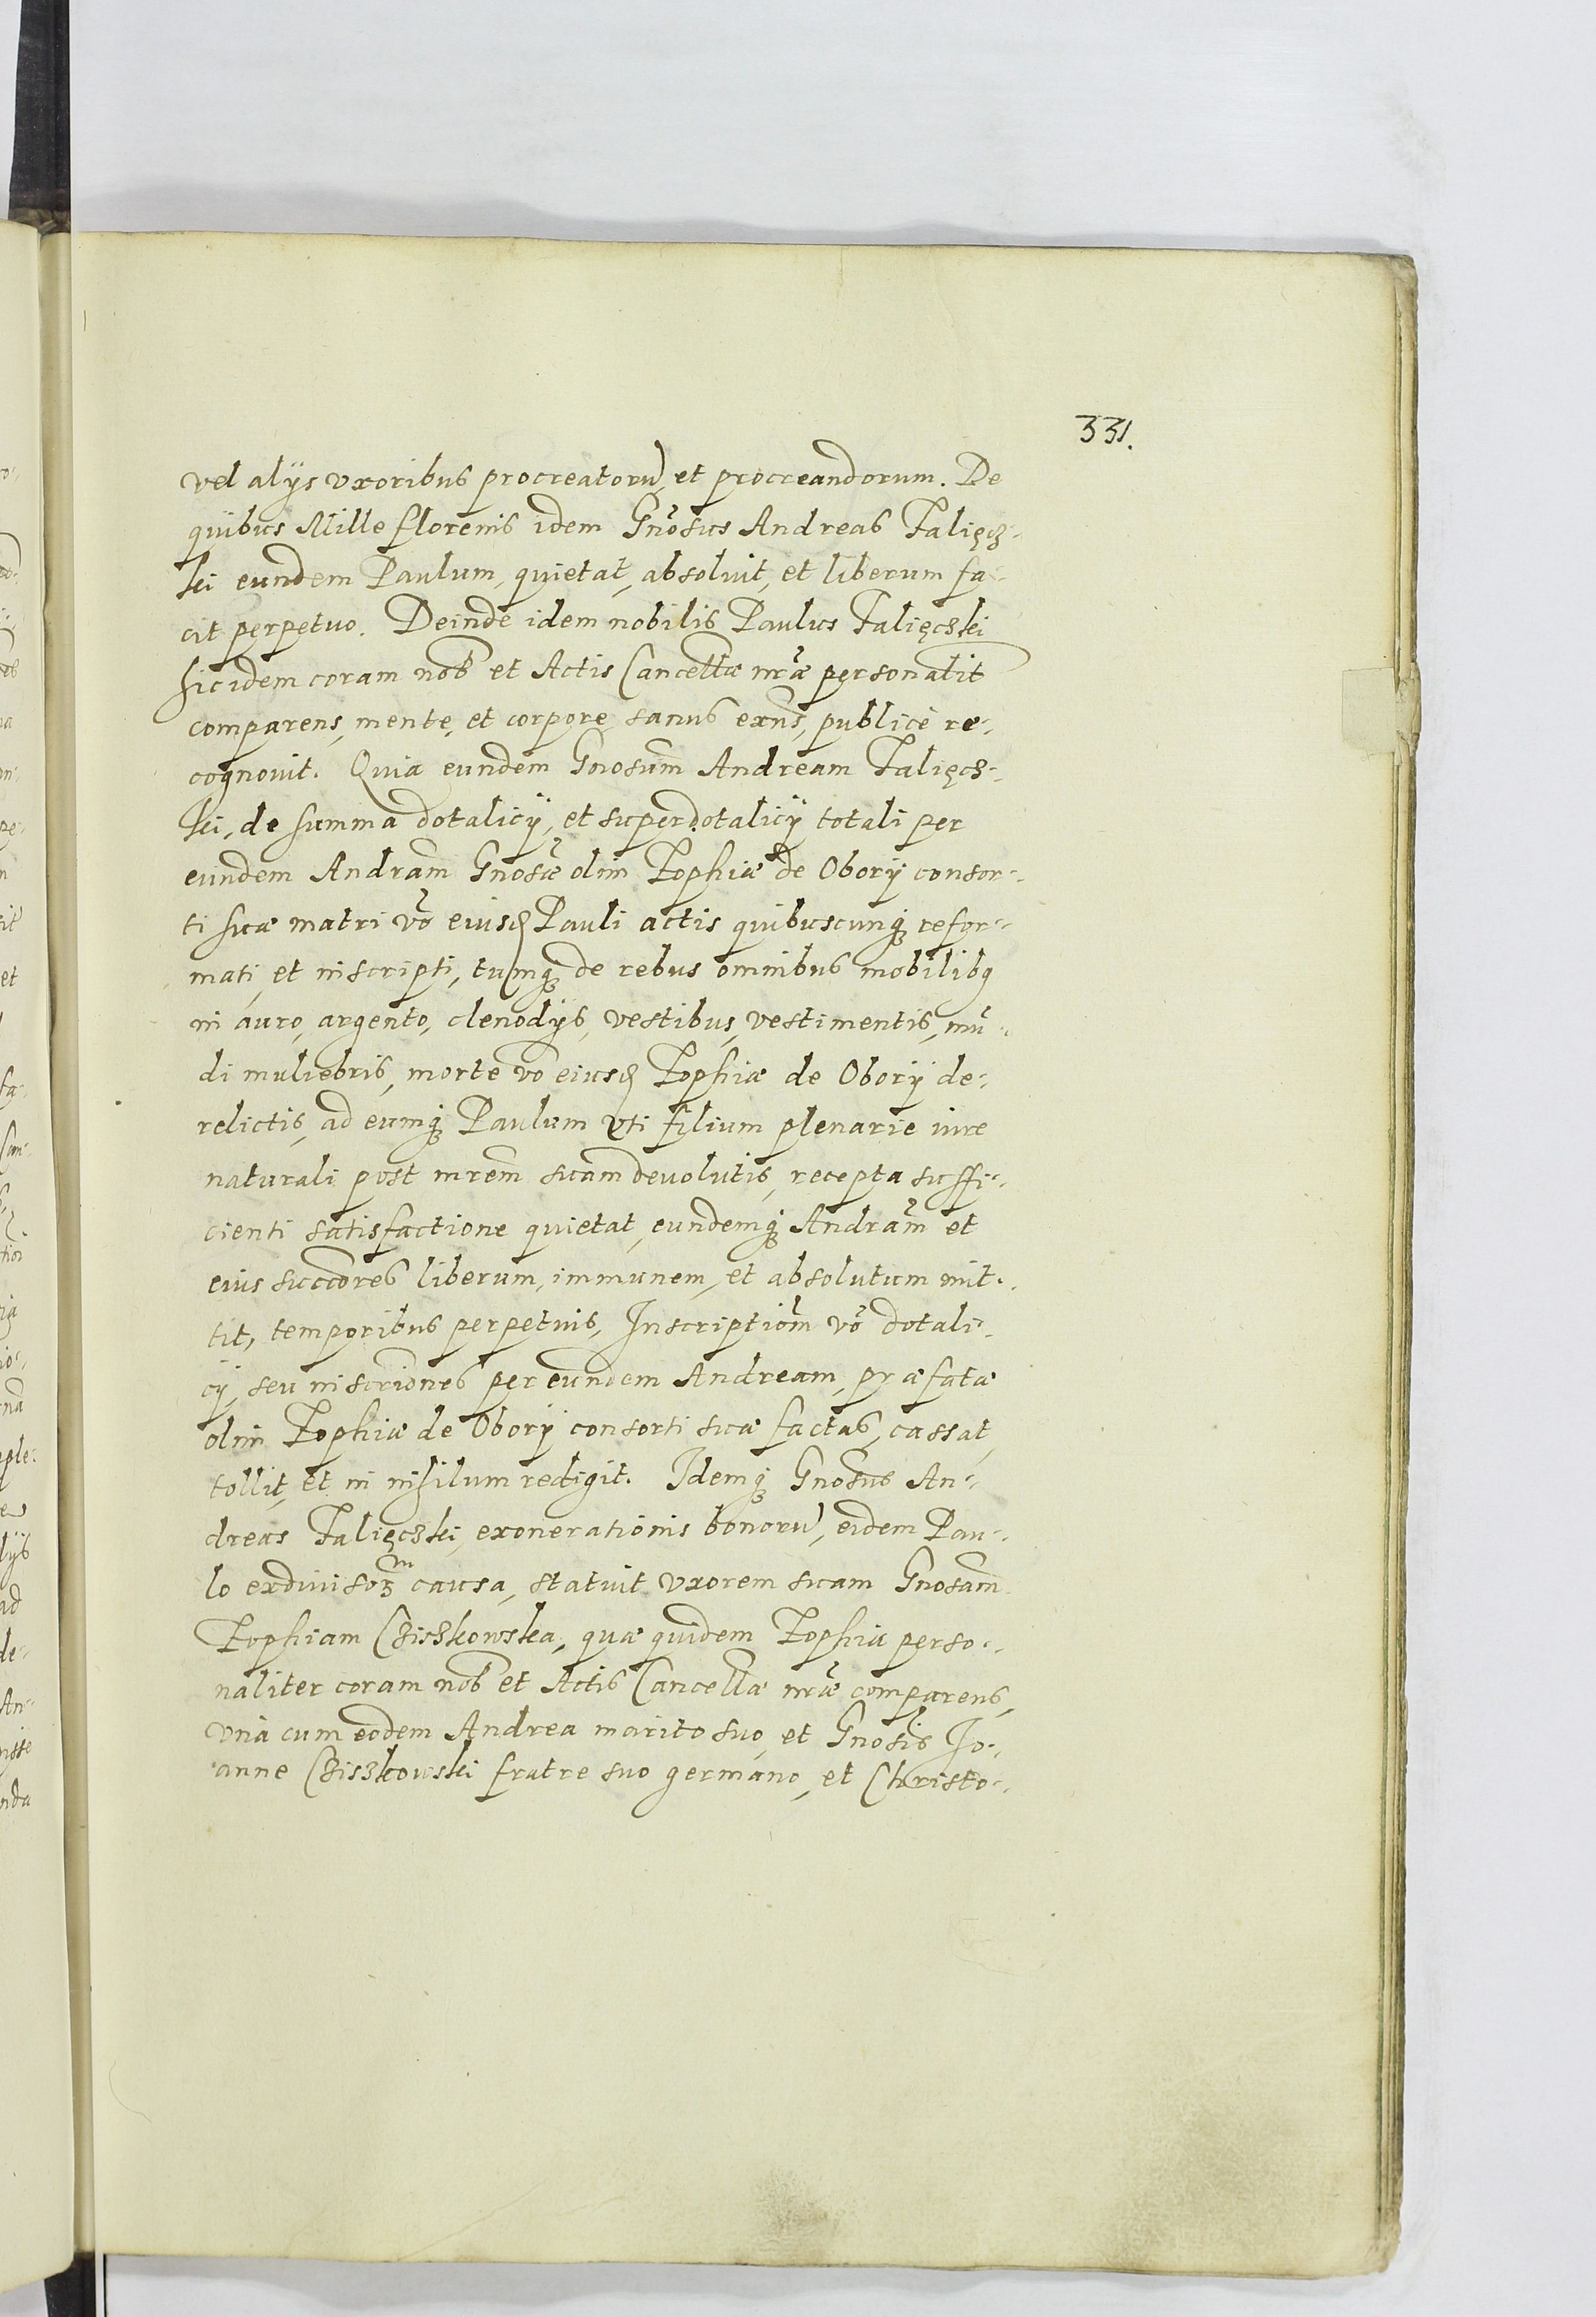 331.
vel alijs vxoribus procreatorũ et procreandorum. De
quibus Mille florenis idem Gñosus Andreas Falięcz-
ski eundem Paulum, quietat, absoluit, et liberum fa-
cit perpetuo. Deinde idem nobilis Paulus Falięczski
hic idem coram nob et Actis Cancellæ nr̃æ personalit
comparens, mente, et corpore sanus exñs, publicè re-
cognouit. Quia eundem Gnosum Andream Falięcz-
ski, de summa dotalicij, et superdotalicij totali per
eundem Andr̃am Gnosæ olim Zophiæ de Obory consor-
ti suæ matri võ eiusd Pauli actis quibuscunq; refor-
mati et inscripti, tumq; de rebus omnibus mobilibq
in auro, argento, clenodijs, vestibus, vestimentis, mũ-
di muliebris, morte vo eiusd Zophiæ de Obory de-
relictis, ad eumq; Paulum vti filium plenarie iure
naturali post mrem suam deuolutis, recepta suffi-
cienti satisfactione quietat, eundemq; Andr̃am et
eius succores liberum, immunem, et absolutum mit-
tit, temporibus perpetuis, Inscriptiom̃ võ dotali-
cij, seu inscriones per eundem Andream, præfatæ
olim Zophiæ de Obory consorti suæ factas, cassat,
tollit, et in nihilum redigit. Idemq; Gnosus An-
dreas Falięczski, exonerationis bonorũ, eidem Pau-
lo exdiuisorm causa, statuit vxorem suam Gnosam
Zophiam Cziszkowska, quæ quidem Zophia perso-
naliter coram nob et Actis Cancellæ nr̃æ comparens,
vnà cum eodem Andrea marito suo, et Gnosis Jo-
anne Cziszkowski fratre suo germano, et Christo-